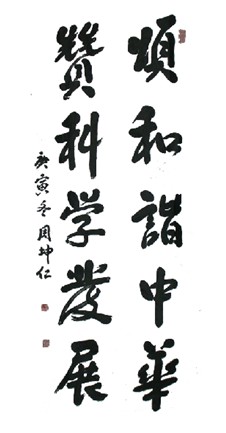 頌和諧中華
贊科学發展
庚寅冬周坤仁